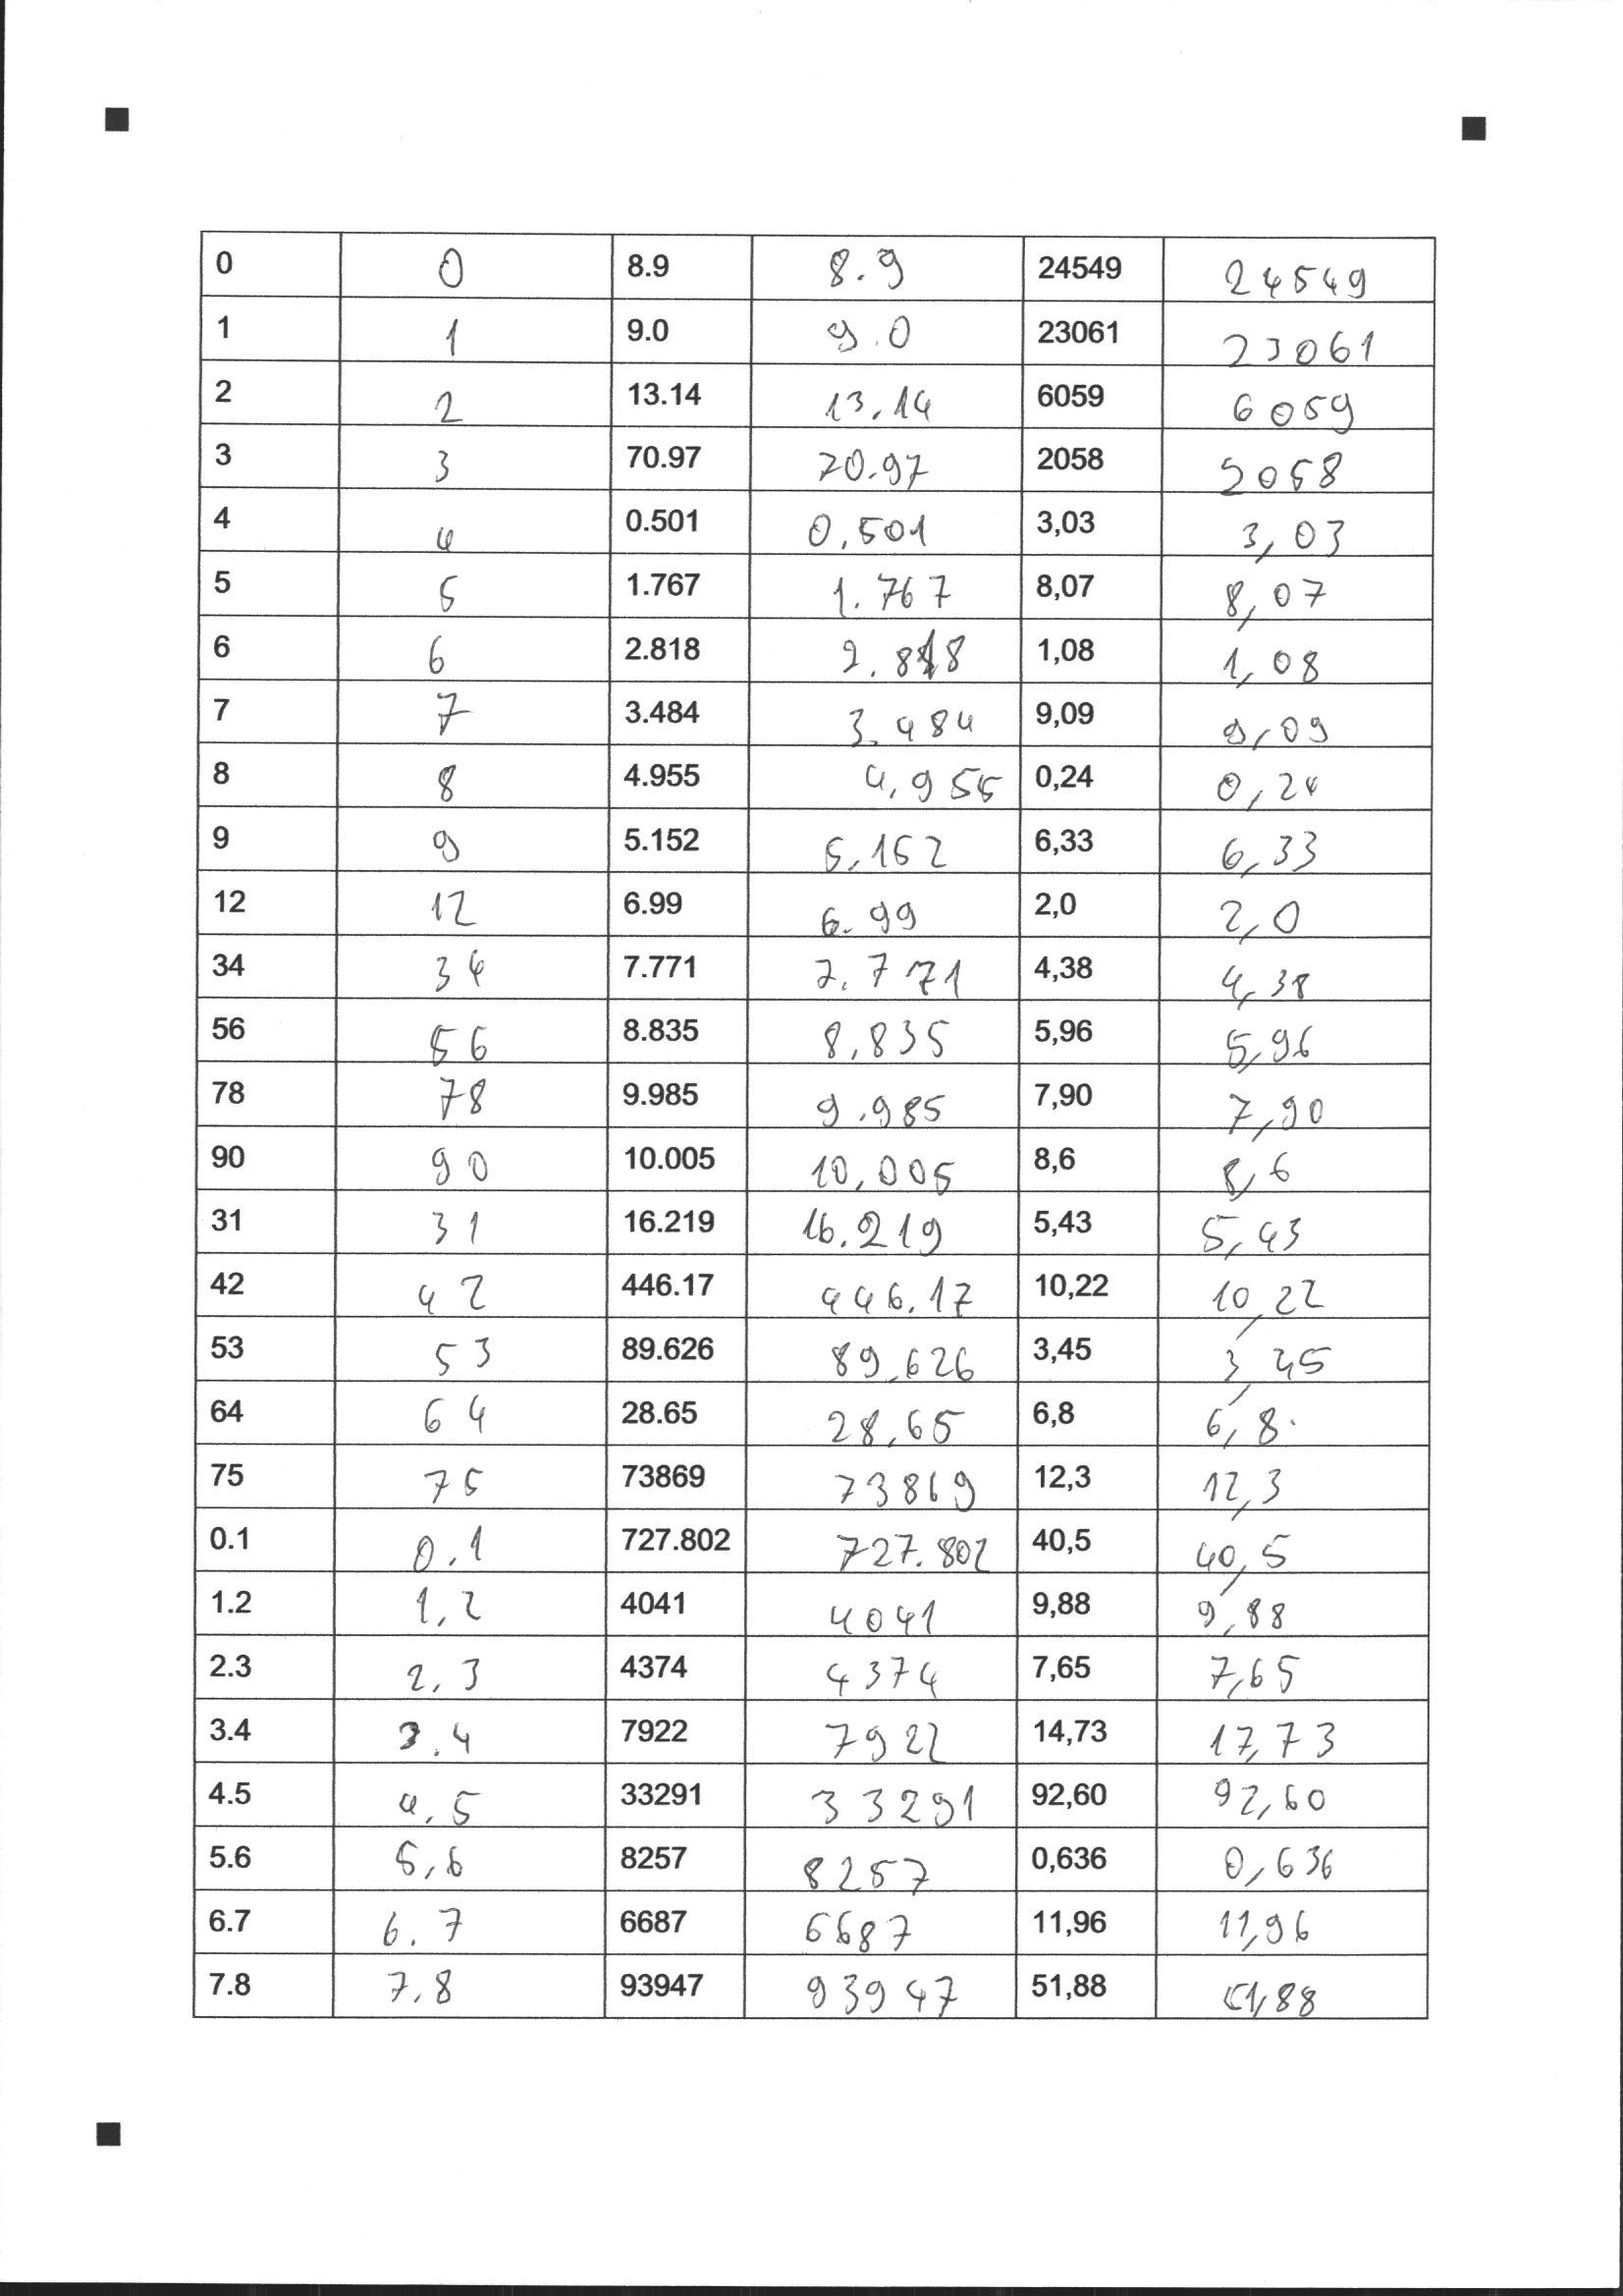 0 0 8.9 8.9 24549 24549
1 1 9.0 9.0 23061 23061
2 2 13.14 13.14 6059 6059
3 3 70.97 70.97 2058 2058
4 4 0.501 0.501 3,03 3,03
5 5 1.767 1.767 8,07 8,07
6 6 2.818 2.818 1,08 1,08
7 7 3.484 3.484 9,09 9,09
8 8 4.955 4.955 0,24 0,24
9 9 5.152 5.152 6,33 6,33
12 12 6.99 6.99 2,0 2,0
34 34 7.771 7.771 4,38 4,38
56 56 8.835 8.835 5,96 5,96
78 78 9.985 9.985 7,90 7,90
90 90 10.005 10.005 8,6 8,6
31 31 16.219 16.219 5,43 5,43
42 42 446.17 446.17 10,22 10,22
53 53 89.626 89.626 3,45 3,45
64 64 28.65 28.65 6,8 6,8
75 75 73869 73869 12,3 12,3
0.1 0.1 727.802 727.802 40,5 40,5
1.2 1,2 4041 4041 9,88 9,88
2.3 2,3 4374 4374 7,65 7,65
3.4 3.4 7922 7922 14,73 17,73
4.5 4,5 33291 33291 92,60 92,60
5.6 5,6 8257 8257 0,636 0,636
6.7 6.7 6687 6687 11,96 11,96
7.8 7,8 93947 93947 51,88 51,88